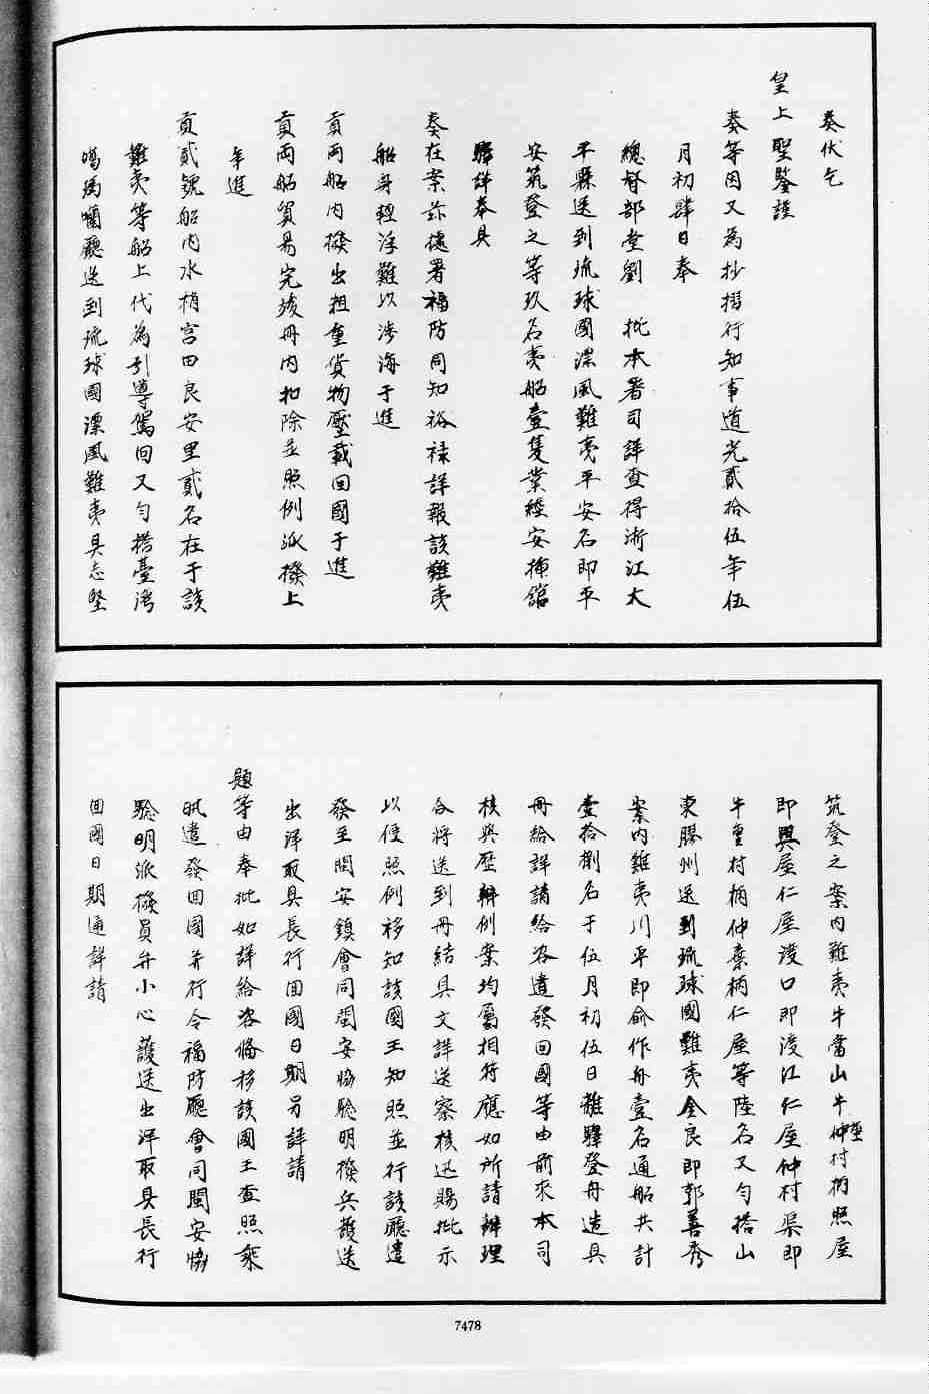 奏伏乞
皇上聖鑒謹
奏等因又為抄摺行知事道光貳拾伍年伍
月初肆日奉
總督部堂劉 批本署司詳查得浙江太
平縣送到琉球國漂風難夷平安名即平
安筑登之等玖名夷船壹隻業經安揷舘
驛詳奉具
奏在案茲據署福防同知裕祿詳報該難夷
船身輕浮難以涉海于進
貢兩船內撥出粗重貨物壓載回國于進
貢兩船貿易完竣冊內扣除並照例派撥上
年進
貢貳號船內水梢宮田良安里貳名在于該
難夷等船上代為引導駕回又勻搭臺灣
噶瑪蘭廳送到琉球國漂風難夷具志堅
筑登之案內難夷牛當山牛仲里村柄照屋
即與屋仁屋渡口即渡江仁屋仲村渠即
牛里村柄仲桑柄仁屋等陸名又勻搭山
東膠州送到琉球國難夷金良即郭善秀
案內難夷川平即俞作舟壹名通船共計
壹拾捌名于伍月初伍日離驛登舟造具
冊給詳請給咨遣發回國等由前來本司
核與歷辦例案均屬相符應如所請辦理
合將送到冊結具文詳送察核迅賜批示
以便照例移知該國王知照並行該廳遣
發至閩安鎮會同閩安協驗明撥兵護送
出洋取具長行回國日期另詳請
題等由奉批如詳給咨俻移該國王查照乘
汛遣發回國并行令福防廳會同閩安協
驗明派撥員弁小心護送出洋取具長行
回國日期通詳請
7478